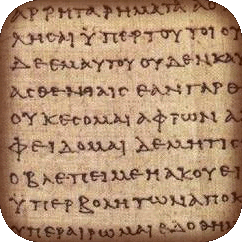 ΑΡΡΗΤΑΡΗΜΑΤΑ Α
ΛΗϹΑΙ ΥΠΕΡΤΟΥΤΟΙΟΥ
ΔΕΕΜΑΥΤΟΥΟΥΔΕΝΚΑΥ
ΑϹΘΕΝΕΙΑΙϹ ΕΑΝΓΑΡΘΕ
ΟΥΚΕϹΟΜΑΙΑΦΡΩΝ ΑΛ
ΦΕΙΔΟΜΑΙ ΔΕΜΗΤΙϹ
ΟΒΛΕΠΕΙΜΕΗΑΚΟΥΕΙ
ΥΠΕΡΒΟΛΗΤΩΝΑΠΟΚ
ΥΠΕΡΑΙΡΩΜΑΙ ΕΔΟΘΗ